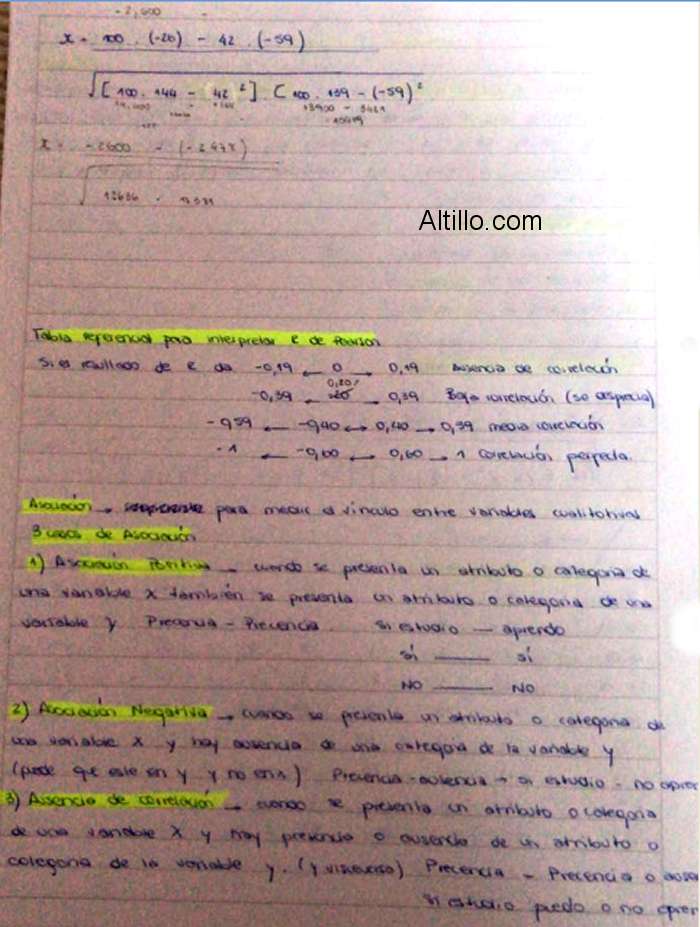 -2,600
x = 100 . (-26) - 42 . (-59)
√[100 . 144 - 42²] . [100 . 139 - (-59)²
14,400 13900 - 3481
10419
x = -2600 - (-2478)
12636 .
Altillo.com
Tabla referencial para interpretar R de Pearson
Si el resultado de R da -0,19 ← 0 → 0,19 Ausencia de correlación
0,20
-0,39 ← → 0,39 Baja correlación (se desprecia)
-0,59 ← -0,40 ↔ 0,40 → 0,59 media correlación
-1 ← -0,60 ↔ 0,60 → 1 correlación perfecta.
Asociación → para medir el vínculo entre variables cualitativas
3 casos de Asociación
1) Asociación Positiva → cuando se presenta un atributo o categoria de
una variable x también se presenta un atributo o categoria de una
variable y Precencia - Precencia. Si estudio — aprendo
Si — Si
NO — NO
2) Asociación Negativa → cuando se presenta un atributo o categoria de
una variable x y hay ausencia de una categoria de la variable y
(puede que este en y y no en x) Precencia - ausencia → si estudio - no apren
3) Ausencia de correlación → cuando se presenta un atributo o categoria
de una variable x y hay presencia o ausencia de un atributo o
categoria de la variable y. (y viceversa) Precencia - Precencia o ausen
Si estudio puedo o no apren